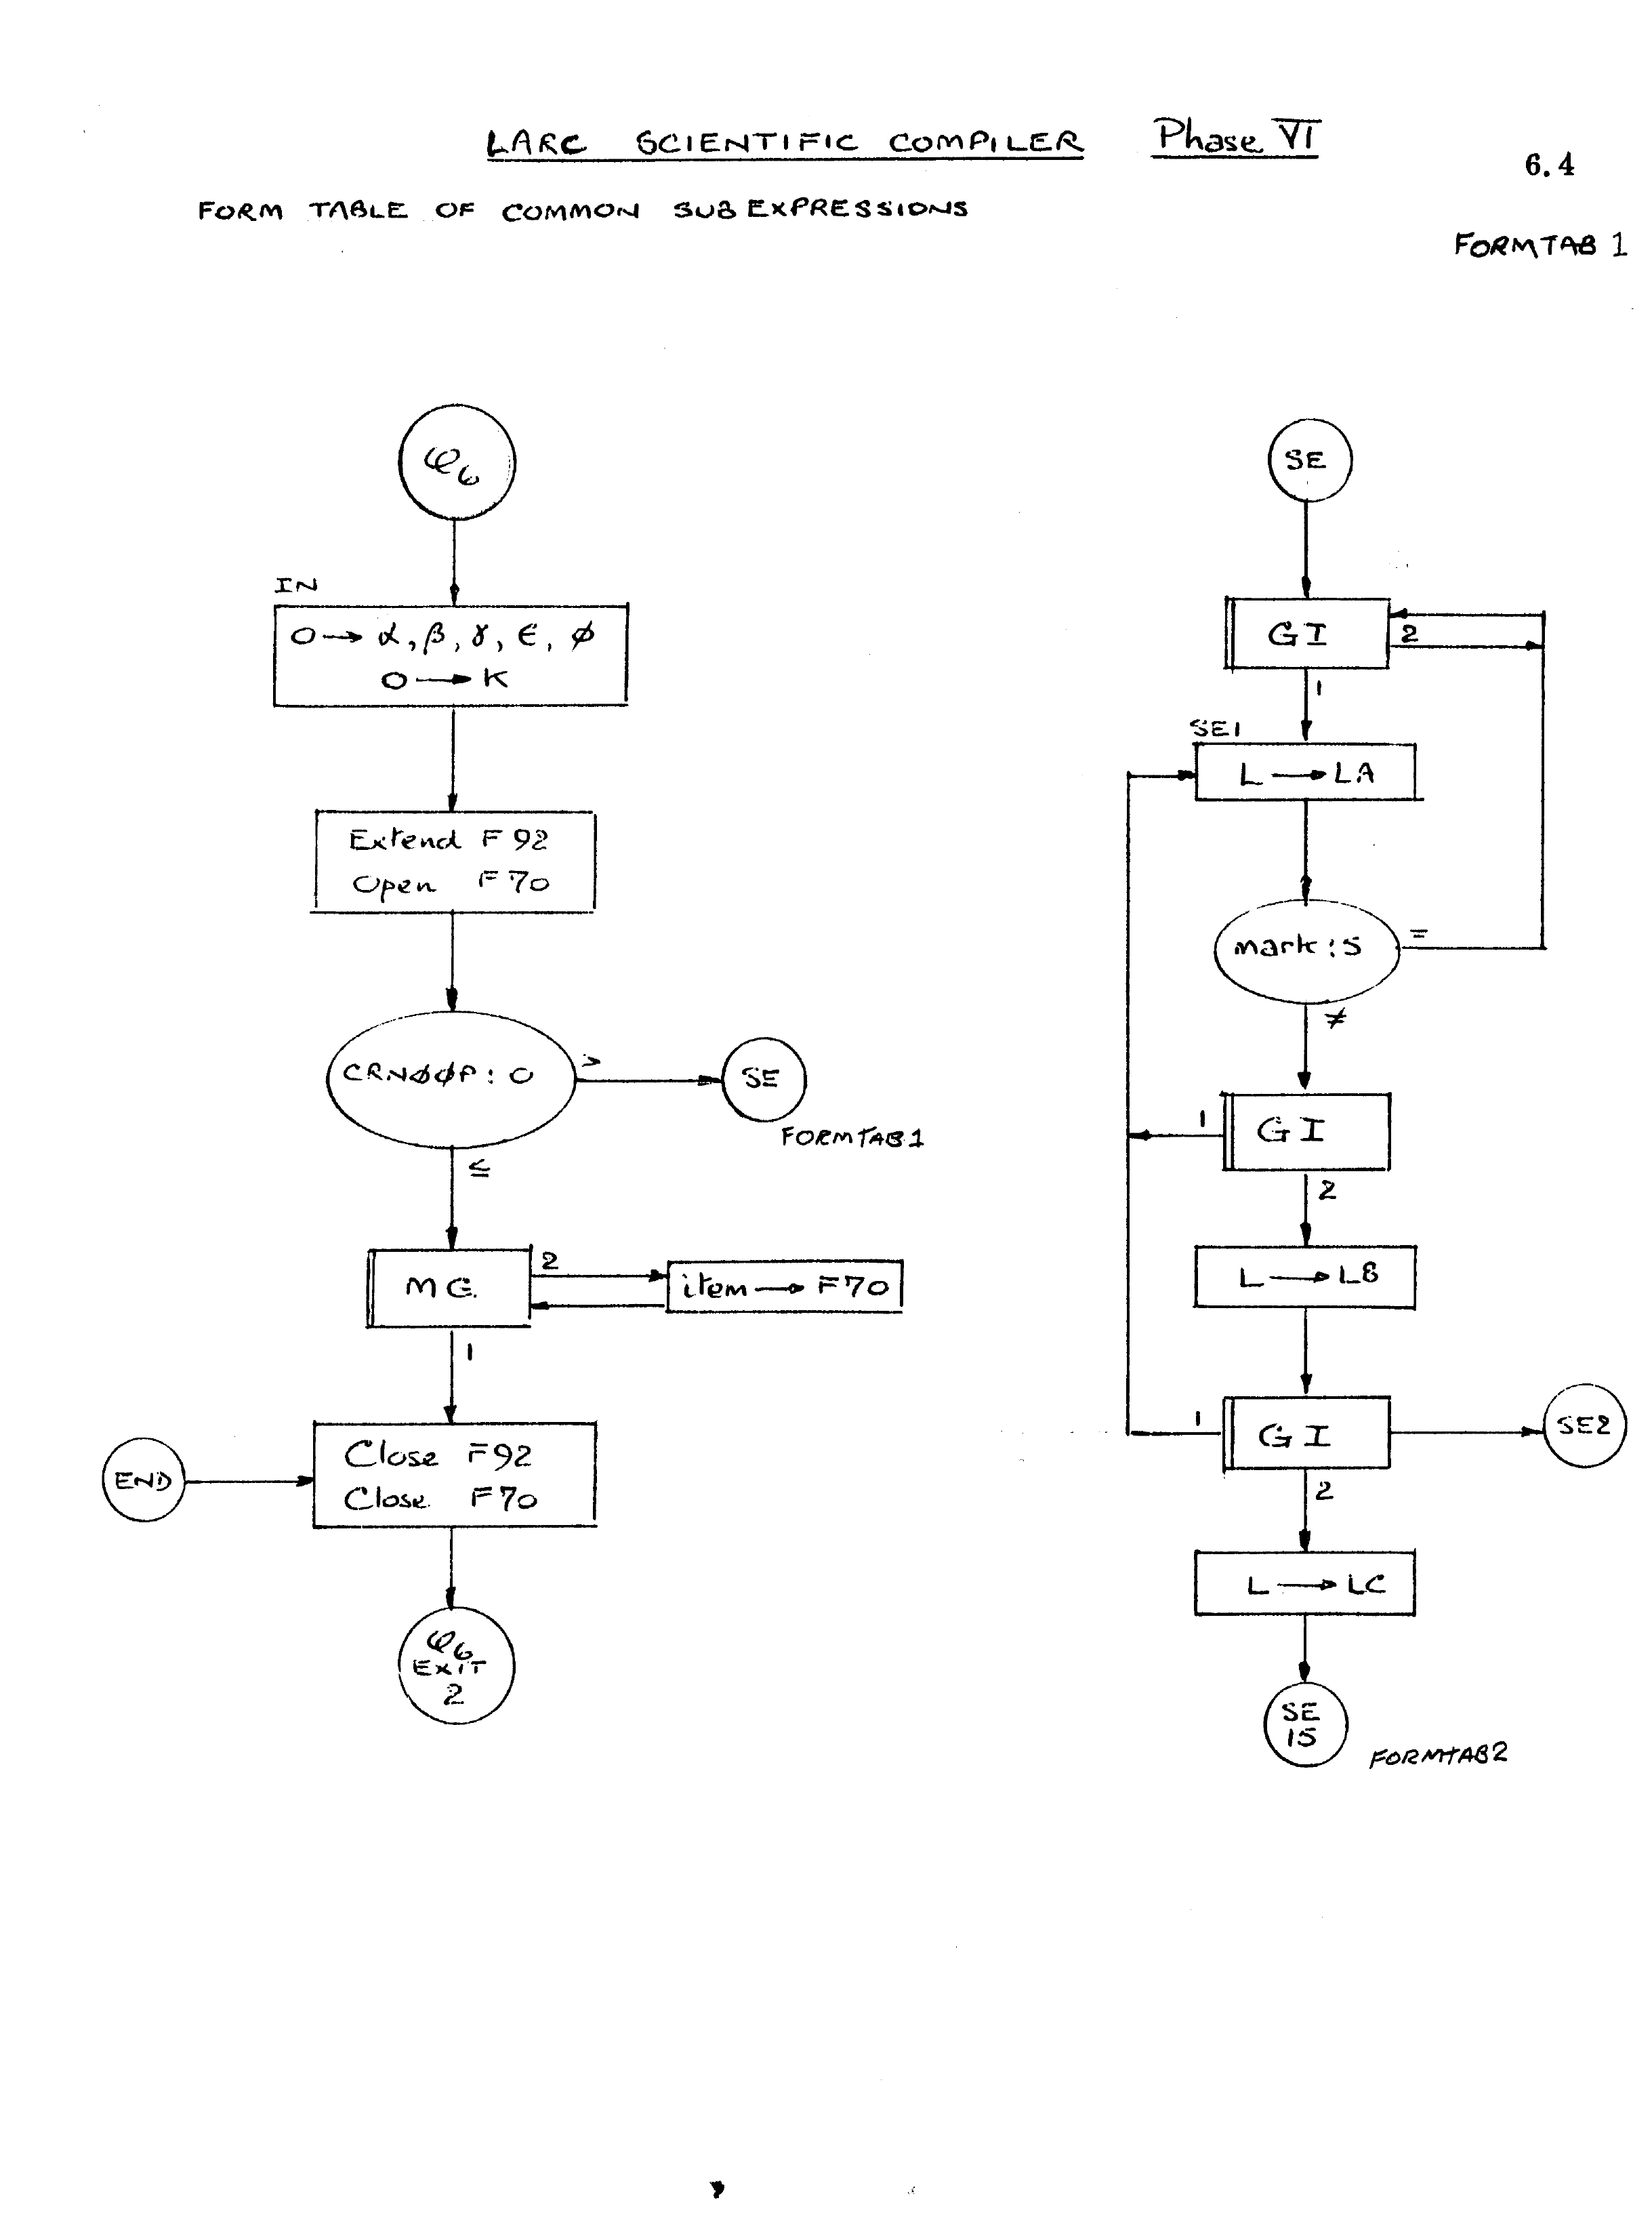 LARC SCIENTIFIC COMPILER Phase VI
6.4
FORM TABLE OF COMMON SUBEXPRESSIONS
FORMTAB 1
φ6
IN
O → α, β, γ, ϵ, ϕ
O → K
Extend F92
Open F70
CRNØØP : O
>
SE
FORMTAB1
≤
MG
2
item → F70
1
END
Close F92
Close F70
φ6
EXIT
2
SE
GI
2
1
SE1
L → LA
mark : S
=
≠
GI
1
2
L → LB
GI
1
SE2
2
L → LC
SE
15
FORMTAB2